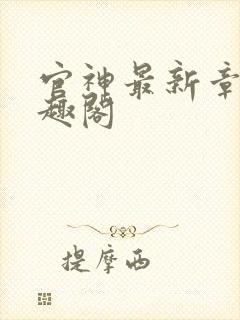 官神最新章
趣阁
提摩西